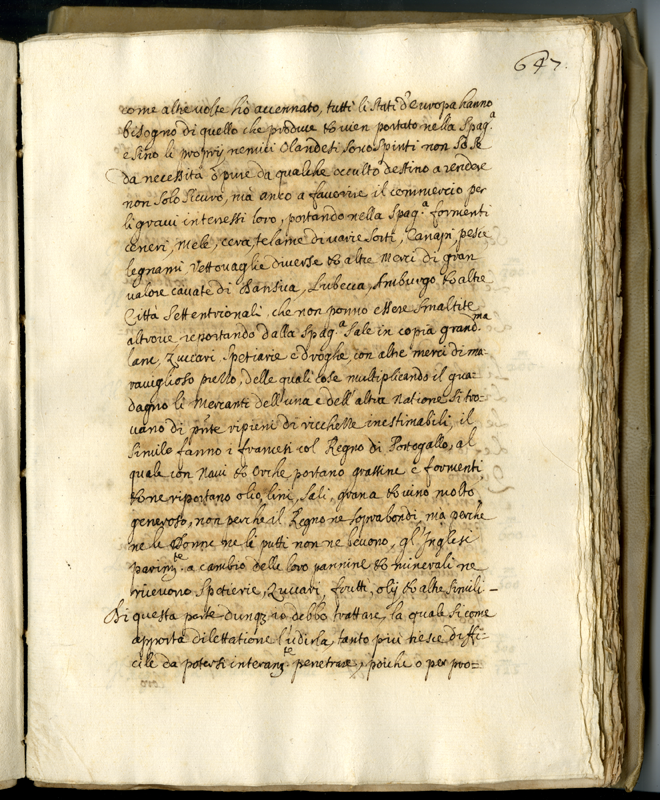 647.
come altre volte hò accennato, tutti li Stati d'europa hanno
bisogno di quello che produce et vien portato nella Spag.a
e sino li proprij nemici Olandesi sono spinti non sò se
da necessità ò pure da qualche occulto destino a rendere
non solo sicuro, mà anco a favorire il commercio per
li gravi interessi loro, portando nella Spag.a formenti
ceneri, Mele, cera, telame di varie sorti, Canapi, pesce
legnami Vettovaglie diverse et altre Merci di gran
valore cavate di Dansica, Lubecca, Amburgo et altre
Città Settentrionali, che non ponno essere smaltite
altrove riportando dalla Spag.a Sale in copia grand.ma
lane, Zuccari, Spetiarie e droghe, con altre merci di ma=
raviglioso prezzo, delle quali cose multiplicando il gua=
dagno li Mercanti dell'una e dell'altra Natione si tro=
vano di pnte ripieni di ricchezze inestimabili, il
simile fanno i francesi col Regno di Portogallo, al
quale con Navi et Orche portano grassine e formenti
et ne riportano olio, lini, sali, grana et vino molto
generoso, non perche il Regno ne soprabondi, ma perche
ne le Donne ne li putti non ne beuono, gl'Inglesi
parim.te a cambio delle loro pannine et minerali ne
ricevono Spetierie, Zuccari, frutti, olij et altre simili –
Di questa parte dunq3 io debbo trattare, la quale si come
apporta dilettatione l'udirla, tanto più riesce diffi=
cile da potersi interam.te penetrare, poiche o per pro=